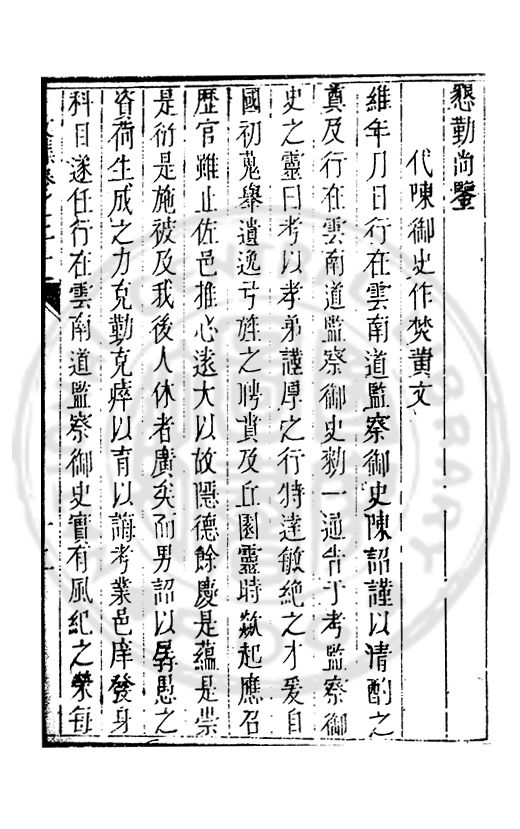 懇勤尚鑒
代陳御史作焚黃文
維年月日行在雲南道監察御史陳詔謹以清酌之
奠及行在雲南道監察御史勑一通告于考監察御
史之靈曰考以孝弟謹厚之行特達敏絶之才爰自
國初蒐舉遺逸弓旌之聘賁及丘園靈時歘起應召
歷官雖止佐邑推心逺大以故隱德餘慶是蘊是崇
是衍是施被及我後人休者廣矣而男詔以孱愚之
資荷生成之力克勤克瘁以育以誨考業邑庠發身
科目遂任行在雲南道監察御史實有風紀之榮每